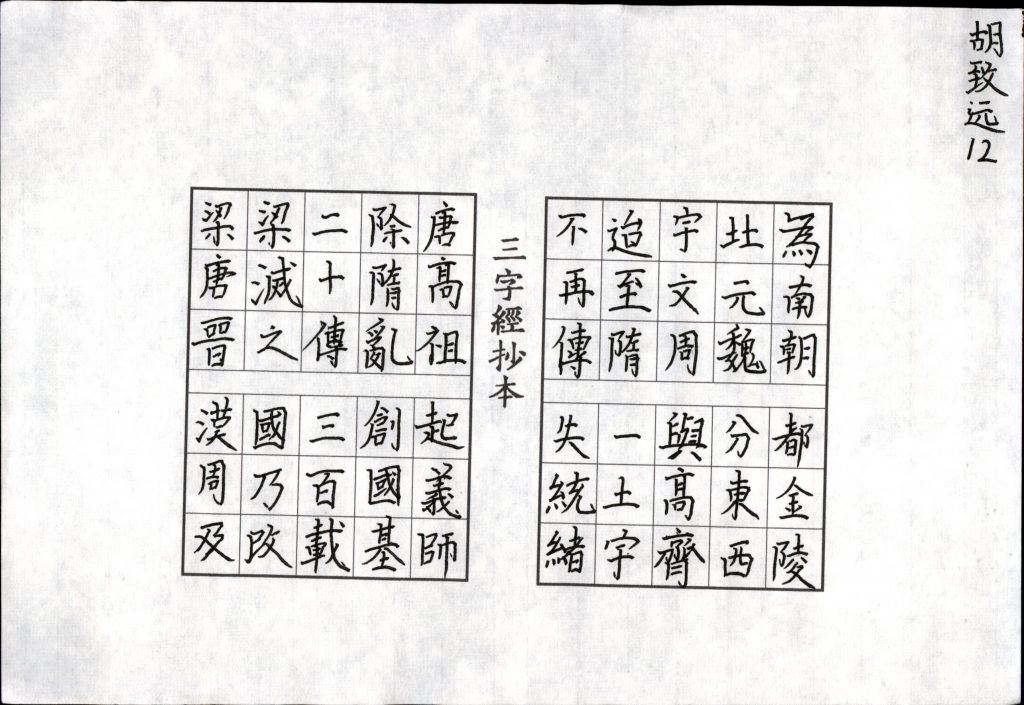 胡致远12
為南朝 都金陵
北元魏 分東西
宇文周 與高齊
迨至隋 一土宇
不再傳 失統緒
三字經抄本
唐高祖 起義師
除隋亂 創國基
二十傳 三百載
梁滅之 國乃改
梁唐晉 漢周及